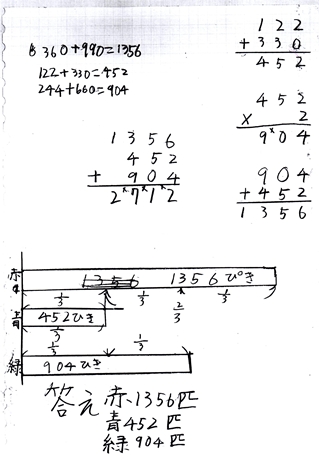 366+990=1356
122+330=452
244+660=904
122
+330
452
452
× 2
904
904
+452
1356
1356
452
+ 904
2712
赤 1356 1356ぴき
1/3 1/3 2/3 1/3
青 452ひき
1/3
1/3 1/3
緑 904ひき
答え 赤1356匹
青452匹
緑904匹